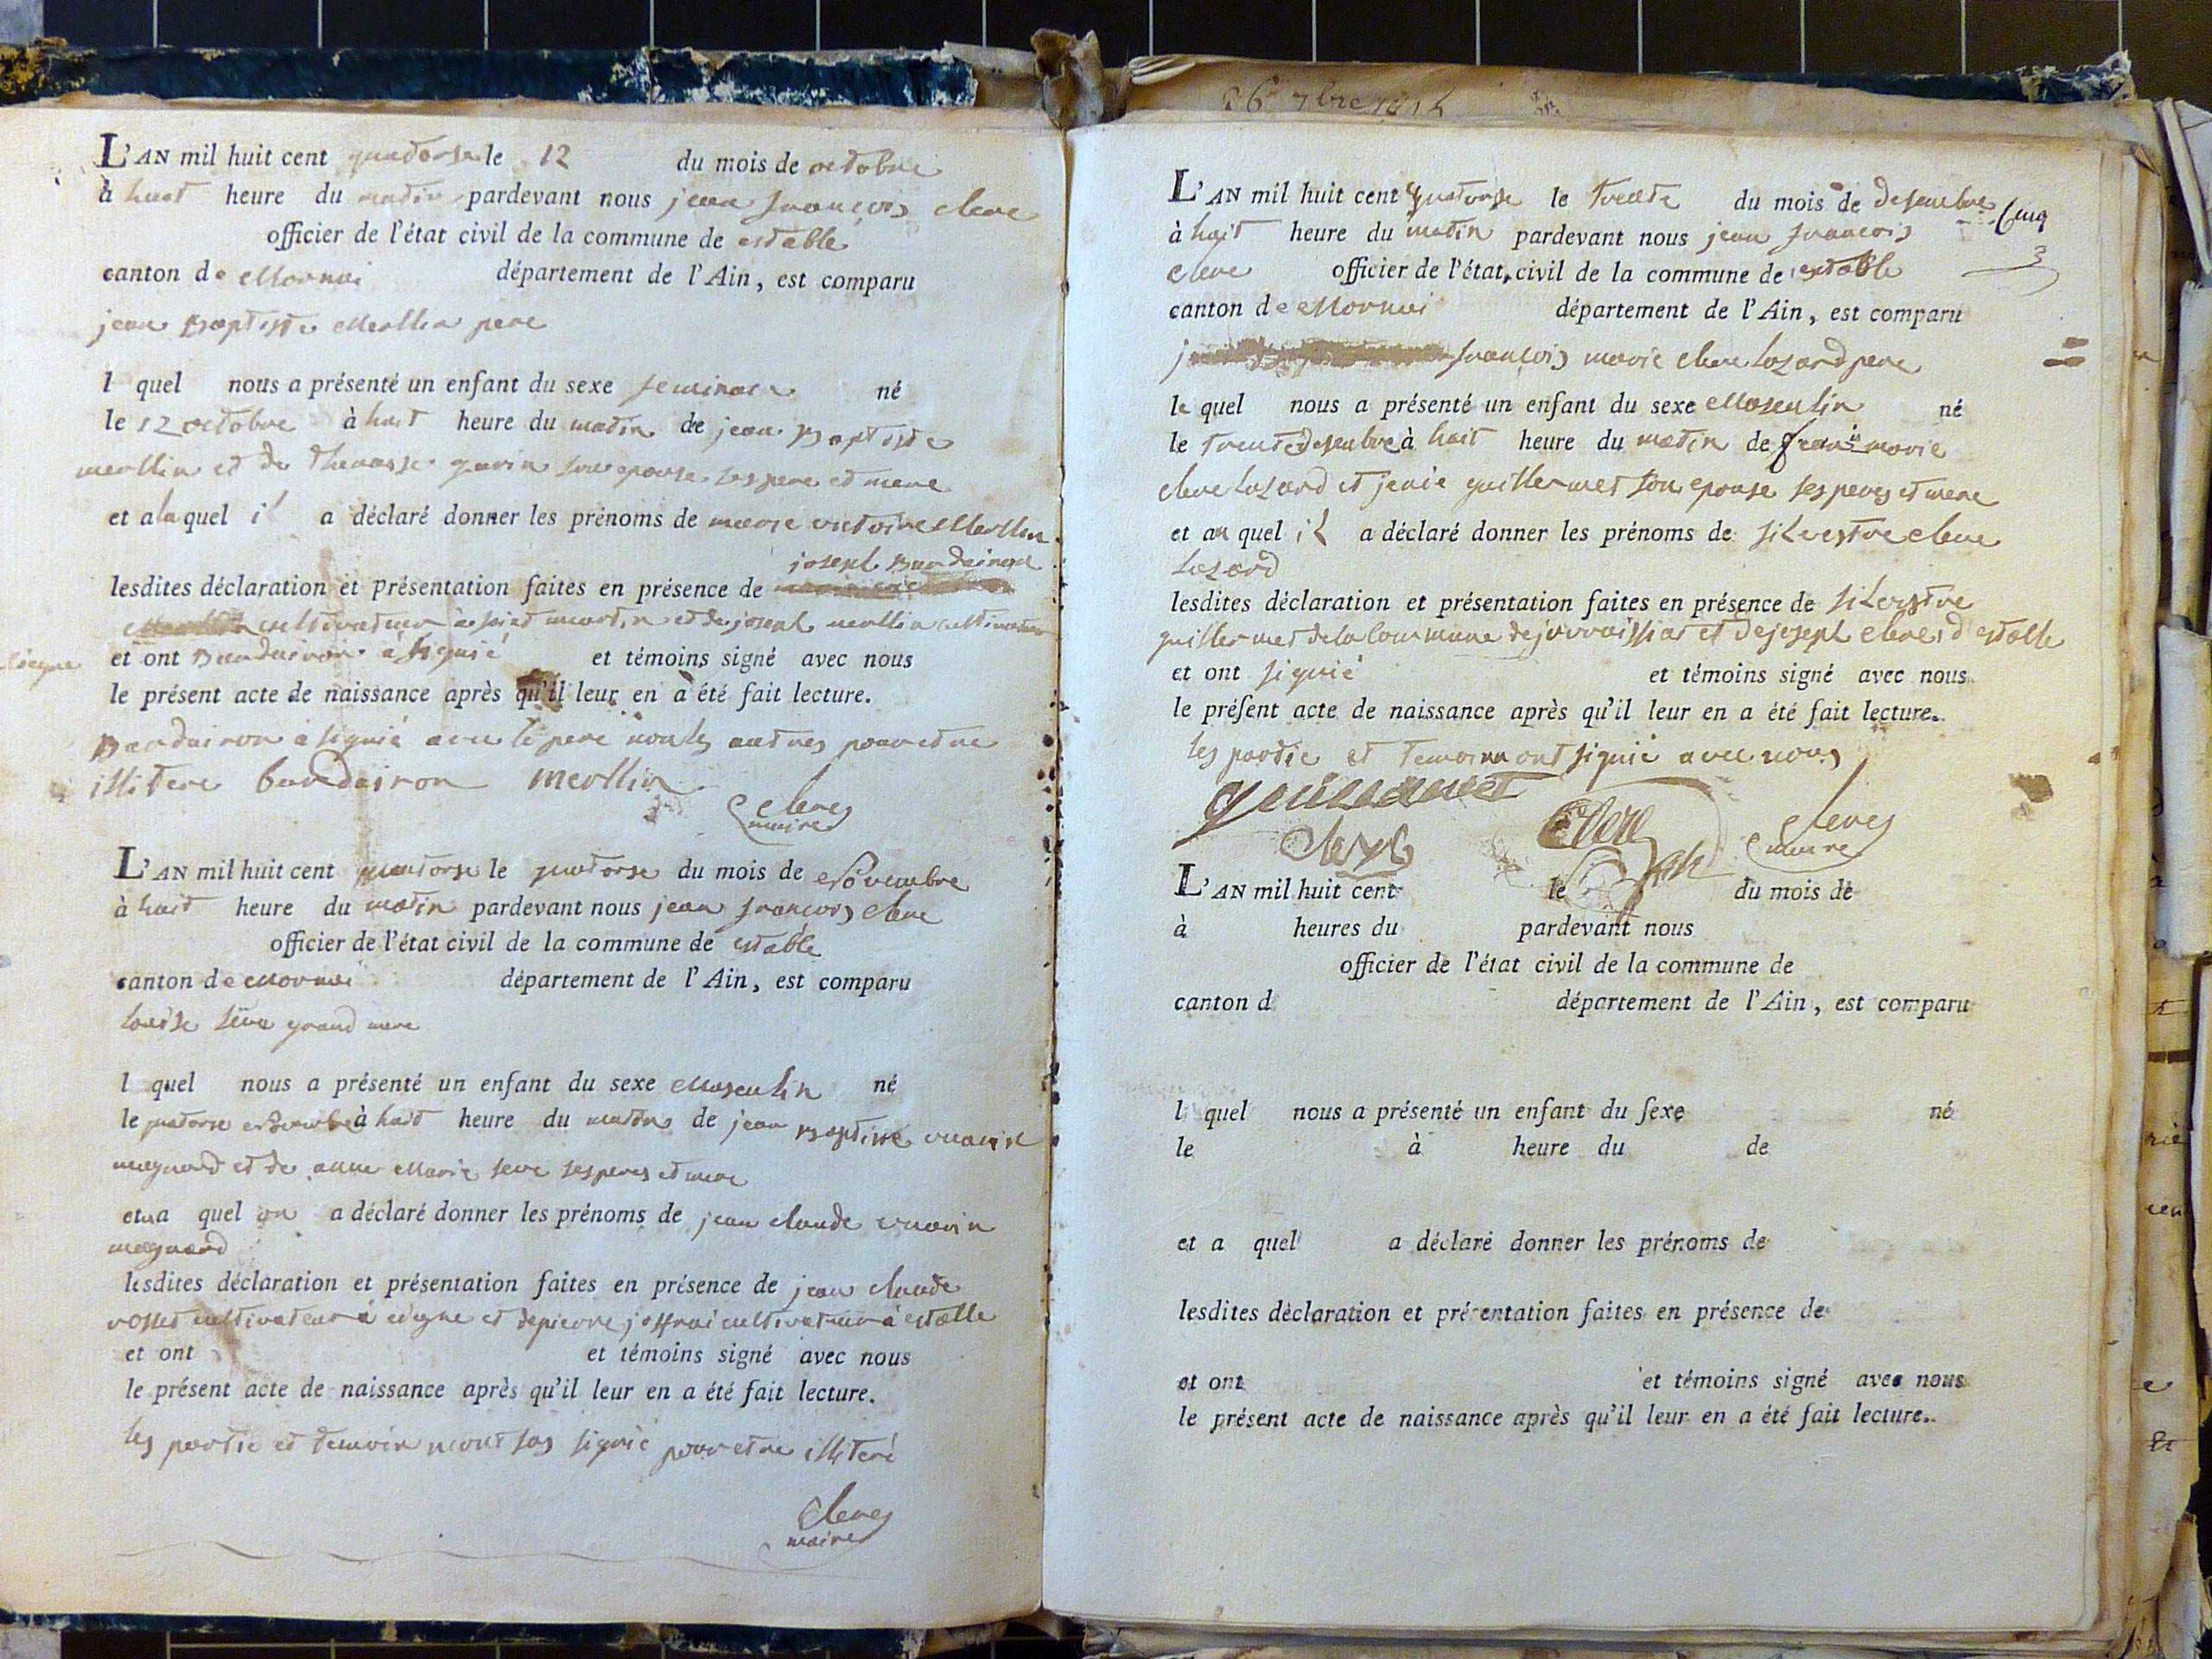 L'AN mil huit cent quatorse le 12 du mois de octobre
à huit heure du matin pardevant nous jean françois clerc
officier de l'état civil de la commune de estable
canton de Mornai département de l'Ain, est comparu
jean Baptiste Merllin pere
l quel nous a présenté un enfant du sexe feminain né
le 12 octobre à huit heure du matin de jean Baptiste
merllin et de gavin son epouse ses pere et mere
et a la quel il a déclaré donner les prénoms de marie victoire Merllin
joseph Baudairon
lesdites déclaration et présentation faites en présence de
cultivateur a saint martin et de joseph merllin cultivateur
et ont Baudairon a signié et témoins signé avec nous
le présent acte de naissance après qu'il leur en a été fait lecture.
Baudairon a signié avec le pere non les autres pour etre
illitere baudairon merllin
clerc
maire
L'AN mil huit cent quatorse le quatorse du mois de Novembre
à huit heure du matin pardevant nous jean françois clerc
officier de l'état civil de la commune de estable
canton de Mornai département de l'Ain, est comparu
louise seve grand mere
l quel nous a présenté un enfant du sexe Masculin né
le quatorse novembre à huit heure du matin de jean Baptiste vuarin
magnard et de anne Marie seve ses peres et mere
et a quel on a déclaré donner les prénoms de jean claude vuarin
magnard
lesdites déclaration et présentation faites en présence de jean claude
rosset cultivateur a et de pierre joffrai cultivateur a estable
et ont et témoins signé avec nous
le présent acte de naissance après qu'il leur en a été fait lecture.
les partie et temoin n'ont pas signié pour etre illiteré
clerc
maire
26 7bre 1814
L'AN mil huit cent quatorse le trente du mois de desembre
Cinq
à huit heure du matin pardevant nous jean françois
clerc officier de l'état civil de la commune de estable
canton de Mornai département de l'Ain, est comparu
françois marie clerc lozard pere
le quel nous a présenté un enfant du sexe Masculin né
le trente desembre à huit heure du matin de franis marie
clerc lozard et jenie guillermet son epouse ses peres et mere
et au quel il a déclaré donner les prénoms de silvestre clerc
lozard
lesdites déclaration et présentation faites en présence de silvestre
guillermet de la commune de et de joseph clerc d'estable
et ont signié et témoins signé avec nous
le présent acte de naissance après qu'il leur en a été fait lecture.
les partie et temoin ont signié avec nous
guillermet
clerc
clerc
maire
L'AN mil huit cent le du mois de
à heures du pardevant nous
officier de l'état civil de la commune de
canton d département de l'Ain, est comparu
l quel nous a présenté un enfant du sexe né
le à heure du de
et a quel a déclaré donner les prénoms de
lesdites déclaration et présentation faites en présence de
et ont et témoins signé avec nous
le présent acte de naissance après qu'il leur en a été fait lecture.